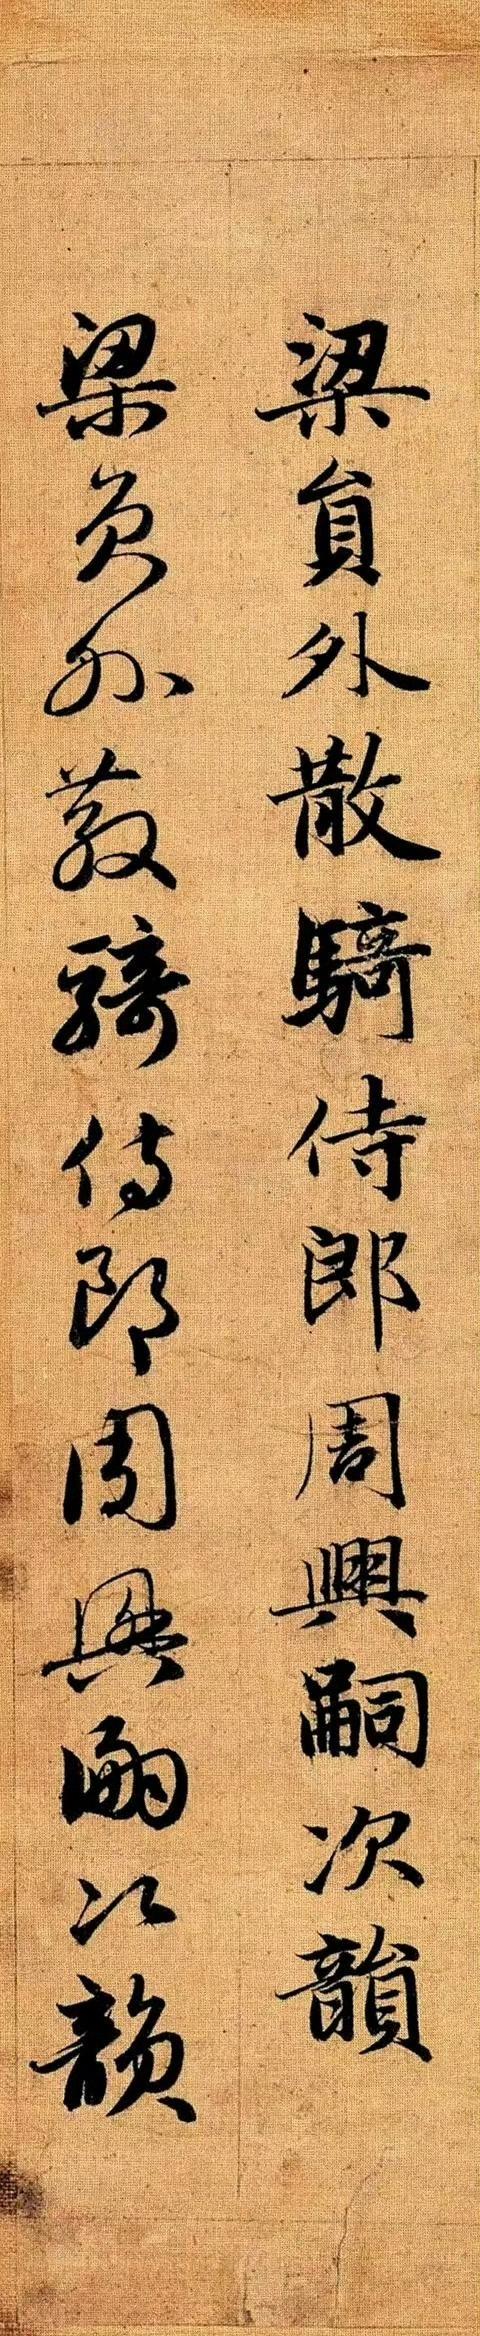 梁員外散騎侍郎周興嗣次韻
梁員外散騎侍郎周興嗣次韻